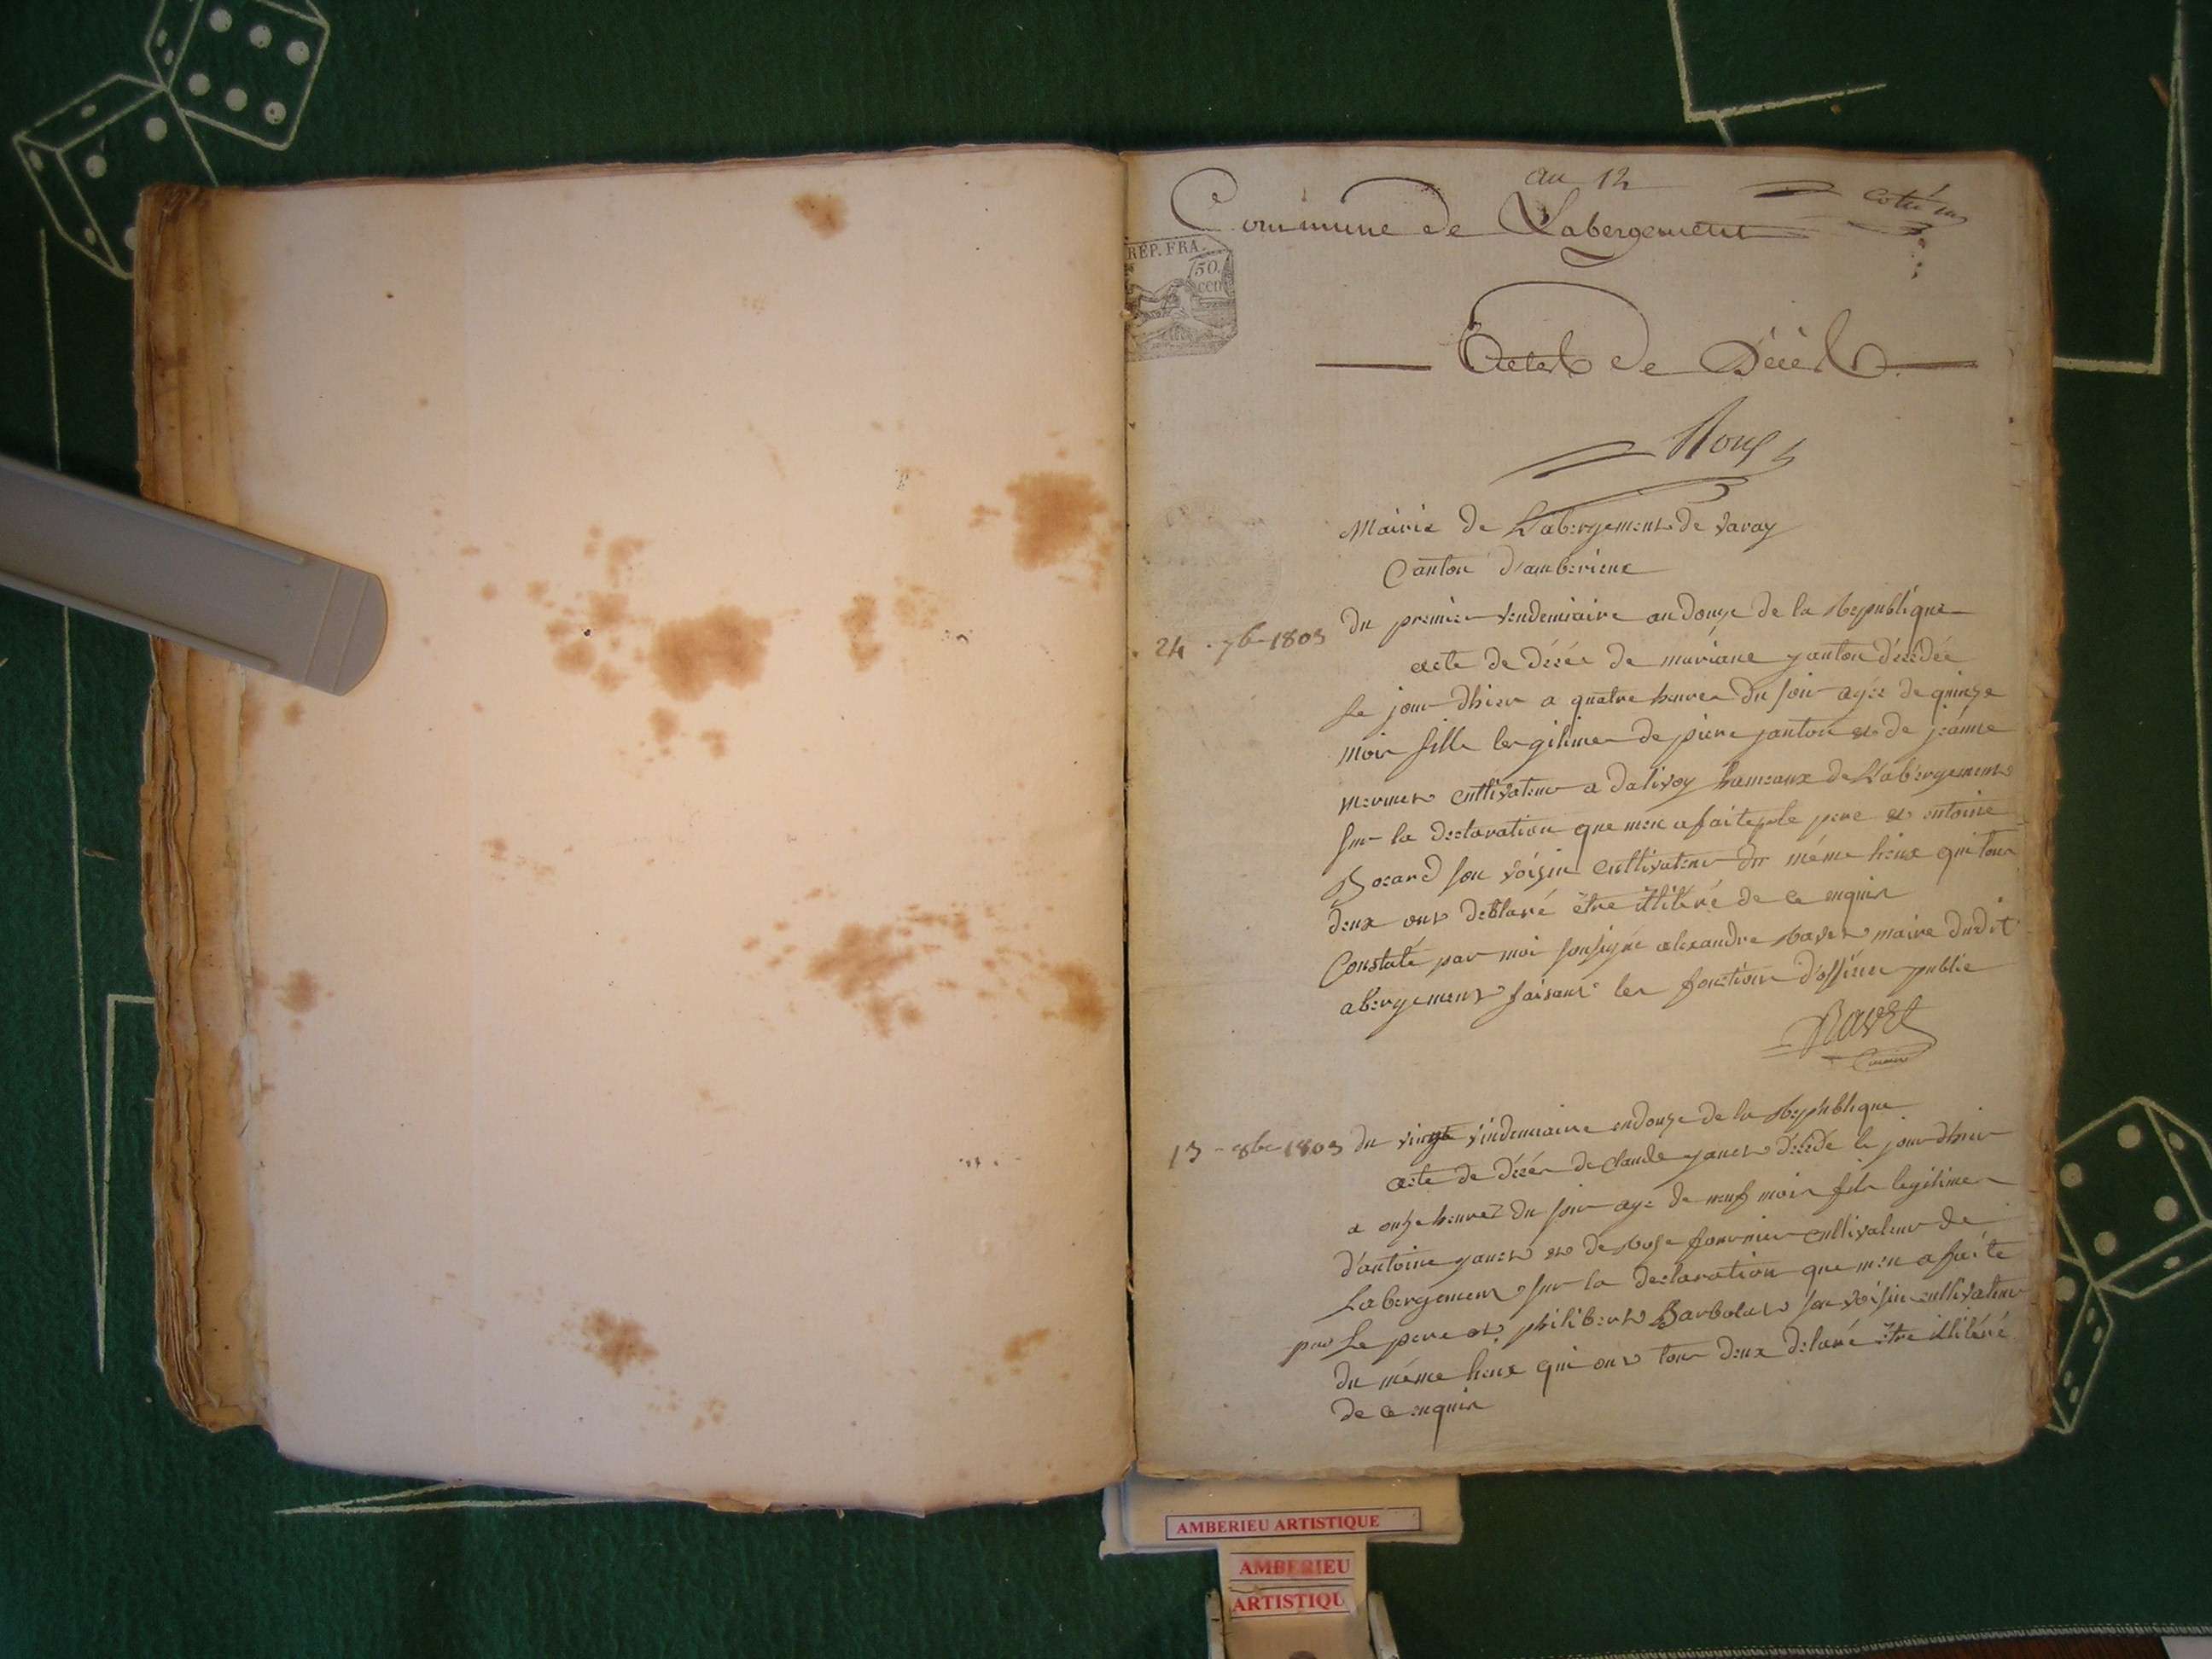 an 12
Commune de Labergement
coté un
REP. FRA.
50.
cen
Actes de Décès
Mairie de L'abergement de Varay
Canton d'amberieux
24 - 7b - 1803
Du premier vendemiaire an douze de la Republique
acte de décés de mariane janton décédée
Le jour d'hier a quatre heures du soir agée de quinze
mois fille legitimes de piere janton et de jeanne
mermet cultivateur a Dalivoy hameaux de L'abergement
sur la declaration que m'en a faites le pere et antoine
Bozard son voisin cultivateur du même lieux qui tous
deux ont déclaré être illitéré de ce enquis
Constaté par moi sousigné alexandre Ravet maire dudit
abergement faisant les fonctions d'officier public
Ravet
maire
13 - 8bre 1803
du vingt vendemiaire an douze de la Republique
acte de décés de Claude janet décédé le jour d'hier
a onze heures du soir agé de neuf mois fils legitimes
d'antoine janet et de Rose fournier cultivateur de
Labergement sur la declaration que m'en a faite
par Le pere et philibert Barbolat son voisin cultivateur
du même lieux qui ont tous deux declaré être illitéré
de ce enquis
AMBERIEU ARTISTIQUE
AMBERIEU
ARTISTIQU